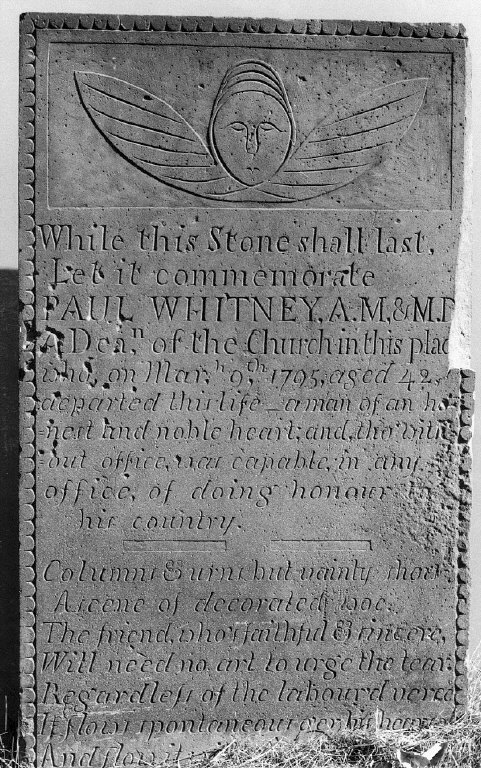 While this Stone shall last,
Let it commemorate
PAUL WHITNEY, A.M. & M.D
A Deaⁿ. of the Church in this plac
who, on Marʰ 9ᵗʰ 1795, aged 42,
departed this life _ a man of an ho
nest and noble heart; and, tho' with
out office, was capable, in any
office, of doing honour to
his country.
Columns & urns but vainly show
A scene of decorated woe.
The friend, who's faithful & sincere,
Will need no art to urge the tear.
Regardless of the labour'd verse
It flows spontaneous o'er his hearse
And flows it